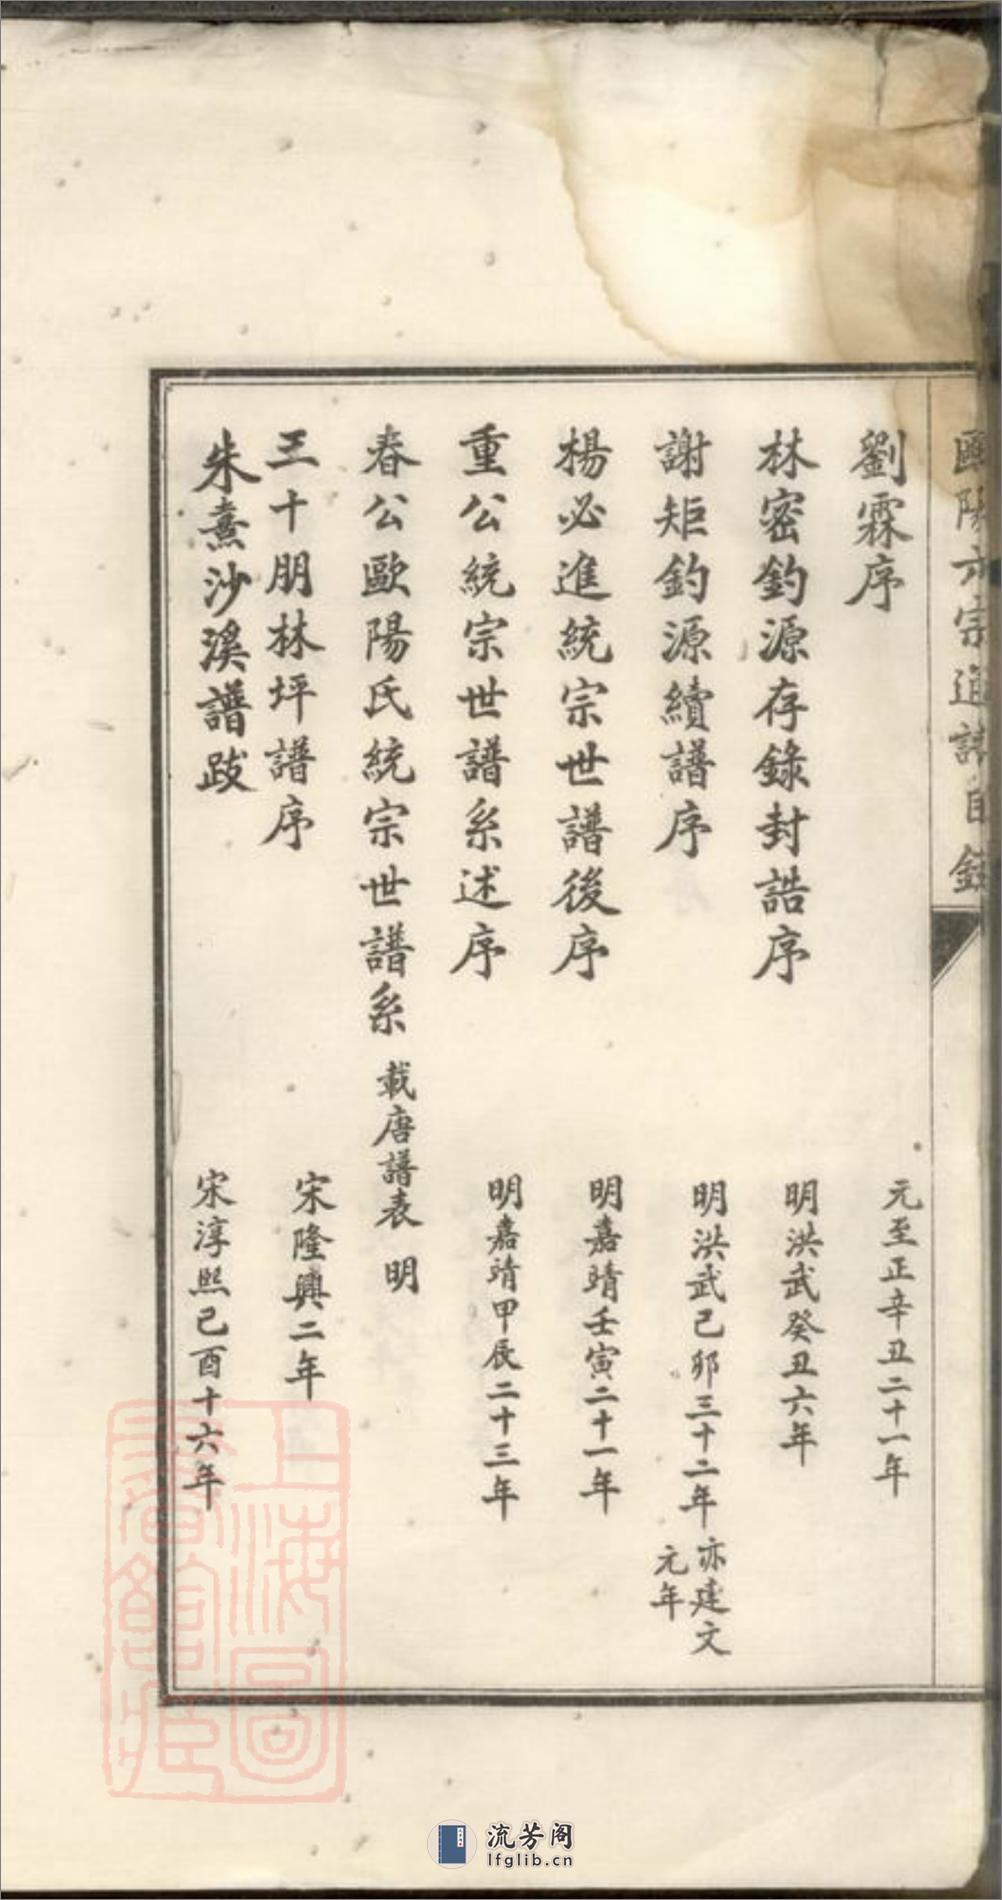 歐陽六宗通譜目錄
劉霖序 元至正辛丑二十一年
林密釣源存錄封誥序 明洪武癸丑六年
謝矩釣源續譜序 明洪武己卯三十二年 亦建文元年
楊必進統宗世譜後序 明嘉靖壬寅二十一年
重公統宗世譜系述序 明嘉靖甲辰二十三年
春公歐陽氏統宗世譜系 載唐譜表 明
王十朋林坪譜序 宋隆興二年
朱熹沙溪譜跋 宋淳熙己酉十六年
上海圖書館藏
流芳阁
lfglib.cn